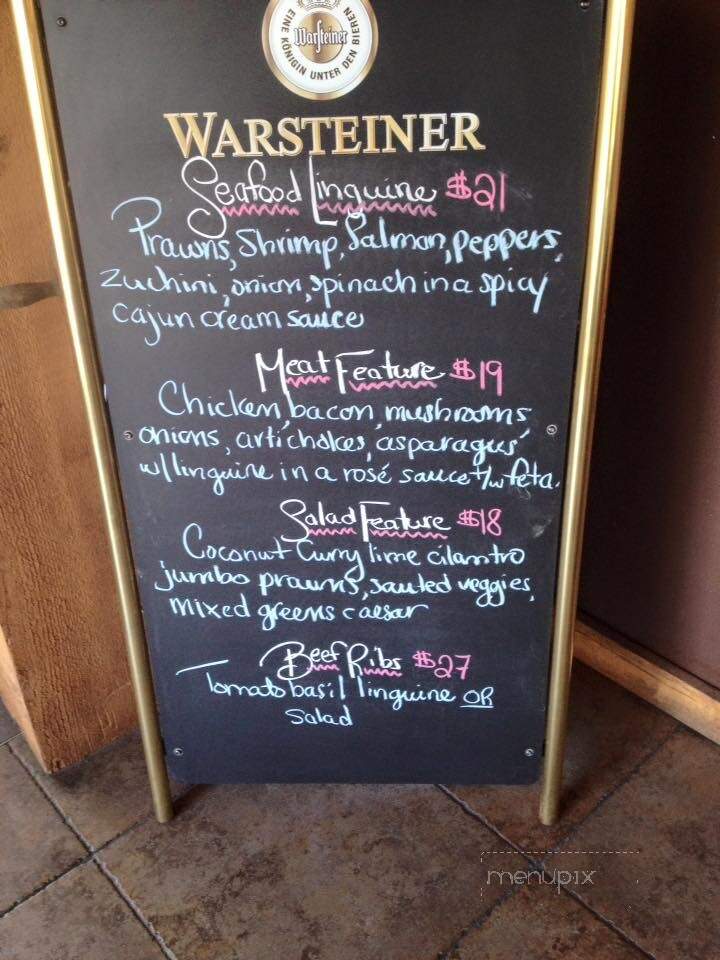 EINE KÖNIGIN UNTER DEN BIEREN
Warsteiner
WARSTEINER
Seafood Linguine $21
Prawns, Shrimp, Salmon, peppers,
zuchini, onion, spinach in a spicy
cajun cream sauce
Meat Feature $19
Chicken, bacon, mushrooms
onions, artichokes, asparagus
w/ linguine in a rosé sauce t/w feta.
Salad Feature $18
Coconut Curry lime cilantro
jumbo prawns, sauted veggies,
mixed greens caesar
Beef Ribs $27
Tomato basil linguine OR
Salad
menupix